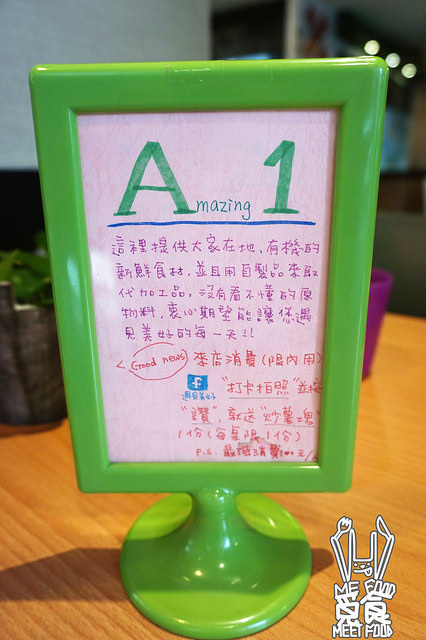 Amazing 1
這裡提供大家在地、有機的
新鮮食材，並且用自製品來取
代加工品，沒有看不懂的原
物料，衷心期望能讓您遇
見美好的每一天!!
< Good news 來店消費(限內用)
f "打卡拍照"並按
遇見美好
"讚"，就送"炒薯塊"
1份(每桌限1份)
P.S. 最低消費100元/
MEET FOOD